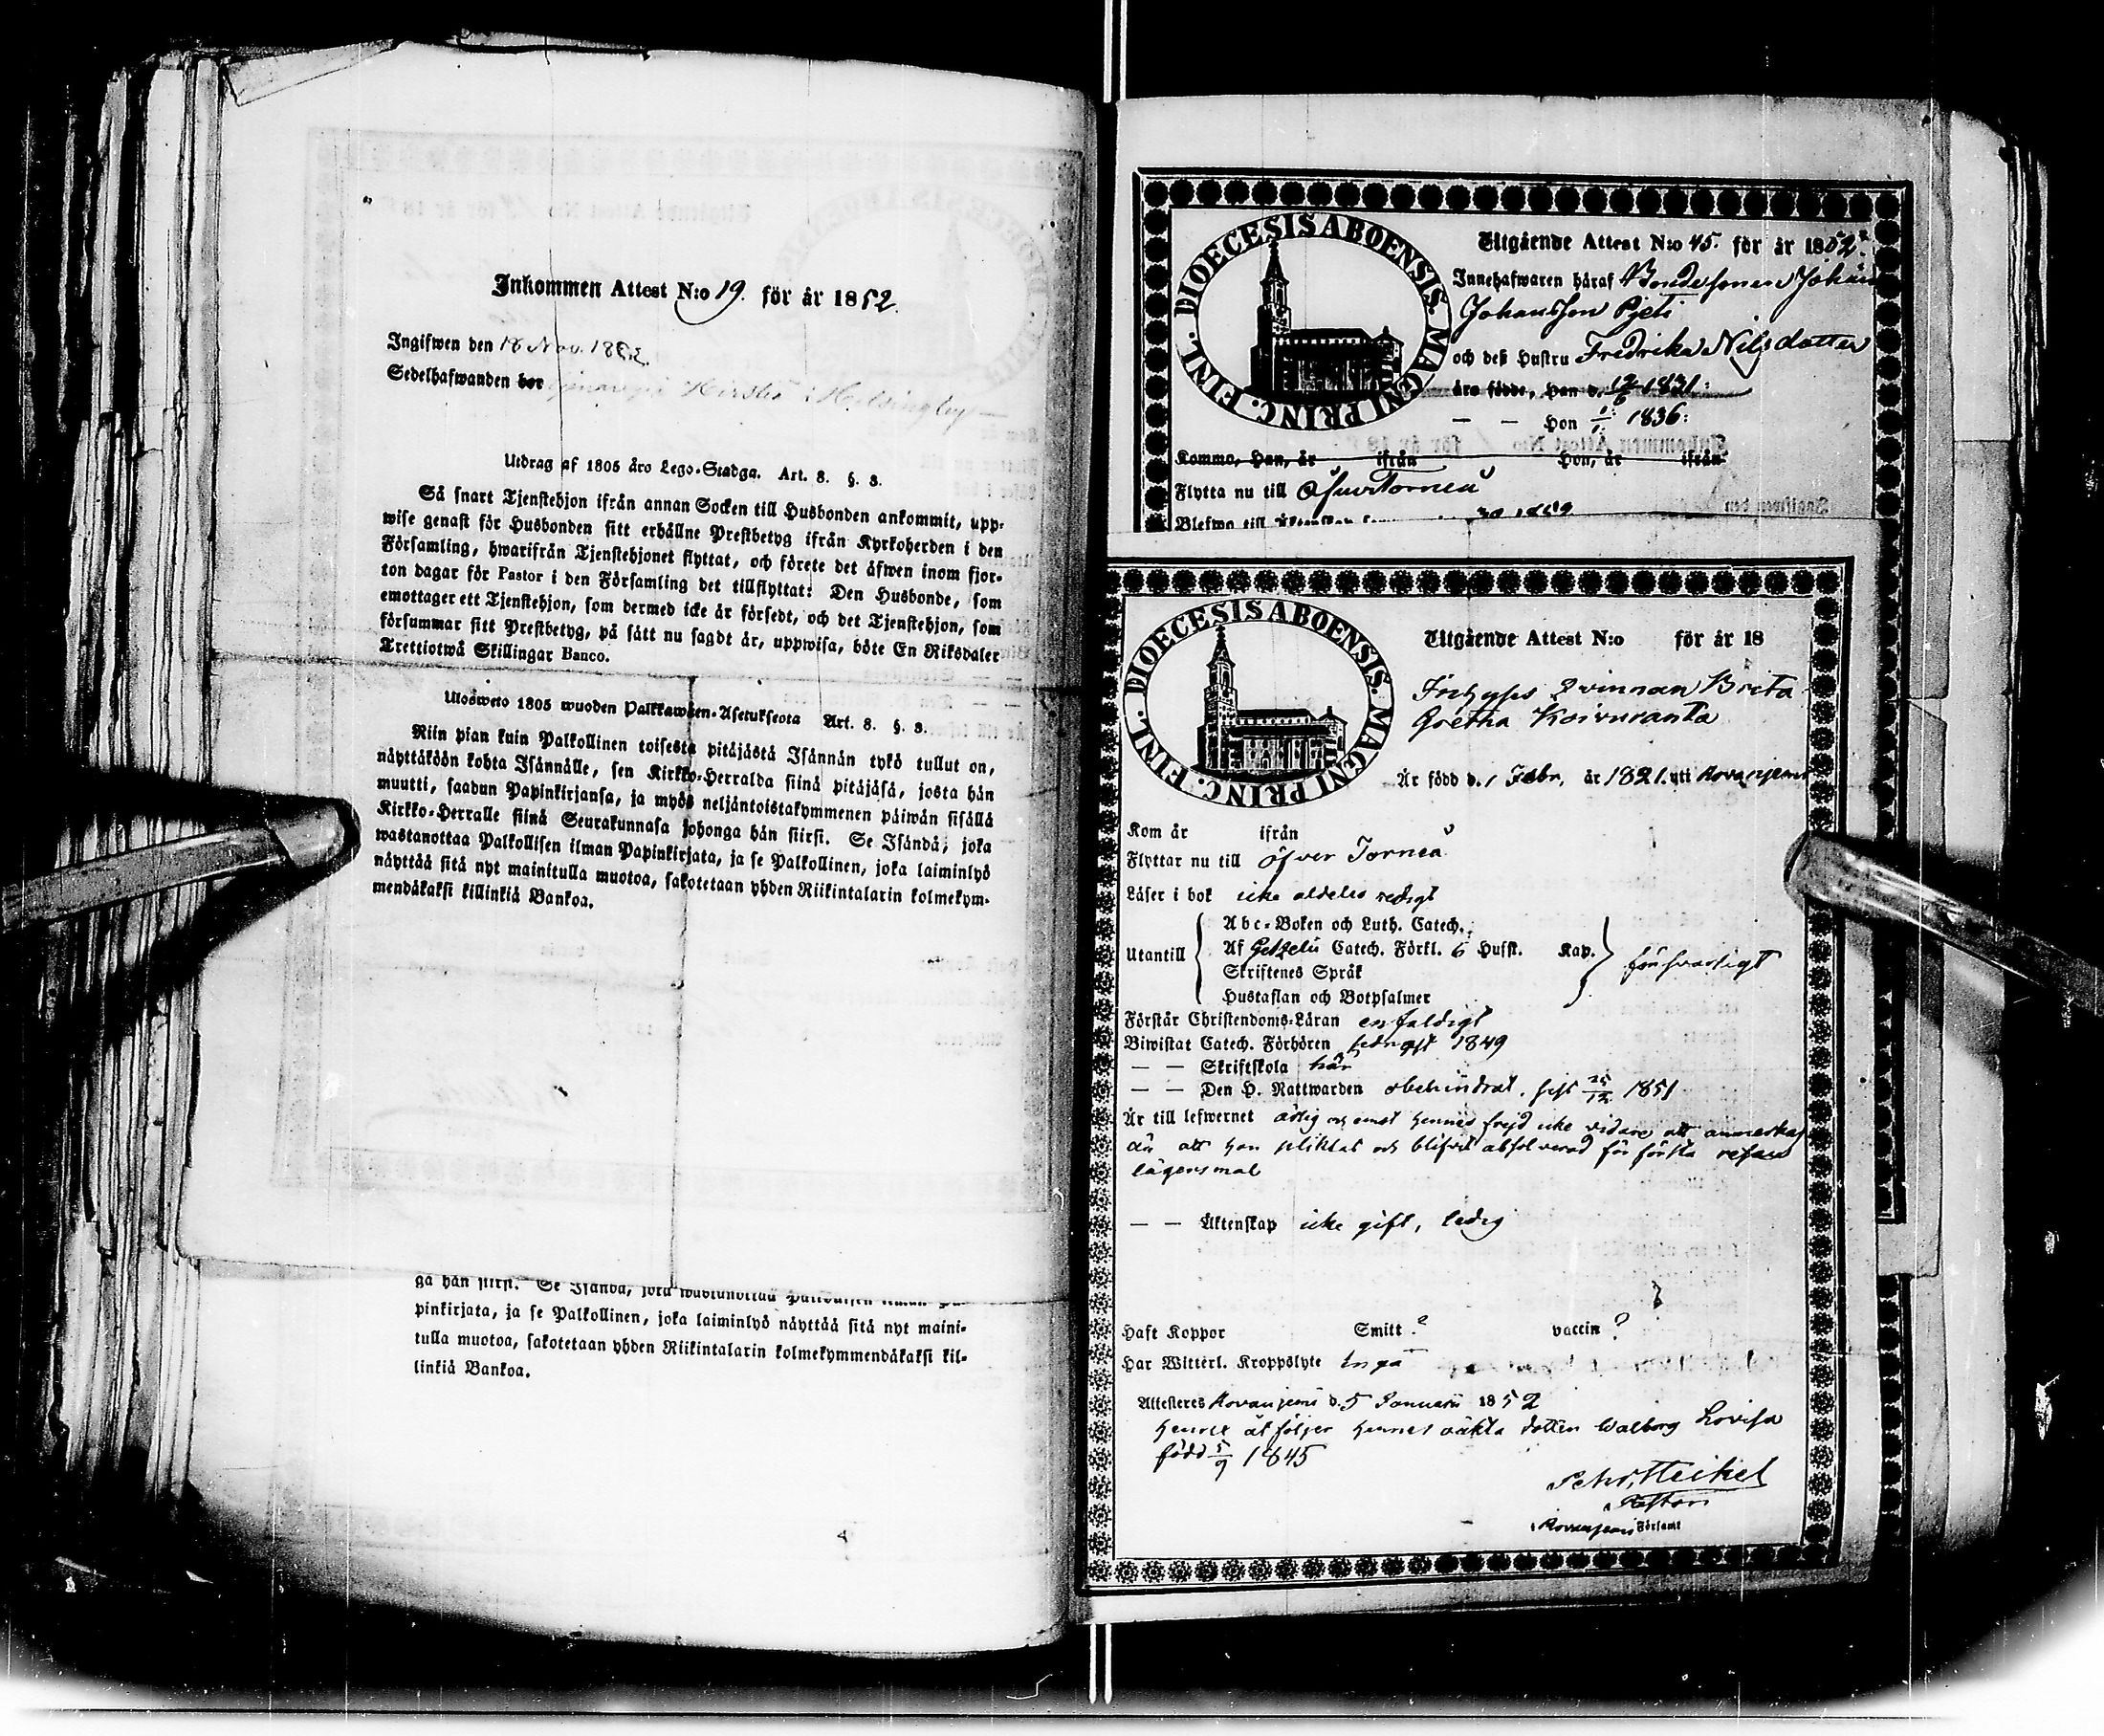 Inkommen Attest N:o 19. för år 1852.
Ingifwen den 18 Nov. 1852
Sedelhafwanden bor Hirsto i Helsingby
Utdrag af 1805 års Lego-Stadga. Art. 8. §. 3.
Så snart Tjenstehjon ifrån annan Socken till Husbonden ankommit, upp-
wise genast för Husbonden sitt erhållne Prestbetyg ifrån Kyrkoherden i den
Församling, hwarifrån Tjenstehjonet flyttat, och förete det äfwen inom fjor-
ton dagar för Pastor i den Församling det tillflyttat: Den Husbonde, som
emottager ett Tjenstehjon, som dermed icke är försedt, och det Tjenstehjon, som
försummar sitt Prestbetyg, på sätt nu sagdt är, uppwisa, böte En Riksdaler
Trettiotwå Skillingar Banco.
Ulosweto 1805 wuoden Palkkawäen-Asetuksesta Art. 8. §. 3.
Niin pian kuin Palkollinen toisesta pitäjästä Isännän tykö tullut on,
näyttäköön kohta Isännälle, sen Kirkko-Herralda siinä pitäjäsä, josta hän
muutti, saadun Papinkirjansa, ja myös neljäntoistakymmenen päiwän sisällä
Kirkko-Herralle siinä Seurakunnasa johonga hän siirsi. Se Isändä, joka
wastanottaa Palkollisen ilman Papinkirjata, ja se Palkollinen, joka laiminlyö
näyttää sitä nyt mainitulla muotoa, sakotetaan yhden Riikintalarin kolmekym-
mendäkaksi killinkiä Bankoa.
ga hän siirsi. Se Isändä, joka wastanottaa Palkollisen ilman Pa-
pinkirjata, ja se Palkollinen, joka laiminlyö näyttää sitä nyt maini-
tulla muotoa, sakotetaan yhden Riikintalarin kolmekymmendäkaksi kil-
linkiä Bankoa.
DIOECESIS ABOENSIS. MAGNI PRINC. FINL.
Utgående Attest N:o 45. för år 1852.
Innehafwaren häraf Bondesonen Johan
Johansson Pjeti
och deß Hustru Fredrika Nilsdotter
äro födde, Han d. 12/6 1831.
— — Hon 1/1 1836.
Komma, Han, år ifrån Hon, år ifrån
Flytta nu till ÖfverTorneå
DIOECESIS ABOENSIS. MAGNI PRINC. FINL.
Utgående Attest N:o för år 18
Qvinnan Brita
Gretha Koivuranta
Är född d. 1 Febr. år 1821. uti Rovanjemi
Kom år ifrån
Flyttar nu till Öfver Torneå
Läser i bok icke aldeles redigt
Utantill
Abc-Boken och Luth. Catech.
Af Getzelii Catech. Förkl. 6 Hufst. Kap.
Skriftenes Språk
Hustaflan och Botpsalmer
försvarligt
Förstår Christendoms-Läran enfaldigt
Biwistat Catech. Förhören sednast 1849
— — Skriftskola här
— — Den H. Nattwarden obehindrat, sist 25/12 1851
Är till lefwernet ärlig och emot hennes frejd icke vidare att anmerka
än att hon pliktat och blifvit absolverad för första resan
lägersmål
— — Äktenskap icke gift, ledig
Haft Koppor Smitt ? vaccin ?
Har Witterl. Kroppslyte Inga
Attesteras Rovanjemi d. 5 Januarii 1852
Henne åtföljer hennes oäkta dotter Walborg Lovisa
född 5/9 1845
Petr. Heikel
Pastor i
Rovanjemi Församl.